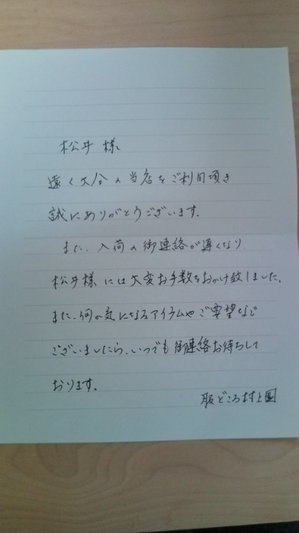 松井 様
遠く大分の当店をご利用頂き
誠にありがとうございます。
また、入荷の御連絡が遅くなり
松井様には大変お手数をおかけ致しました。
また、何か気になるアイテムやご要望など
ございましたら、いつでも御連絡お待ちして
おります。
服どころ村上